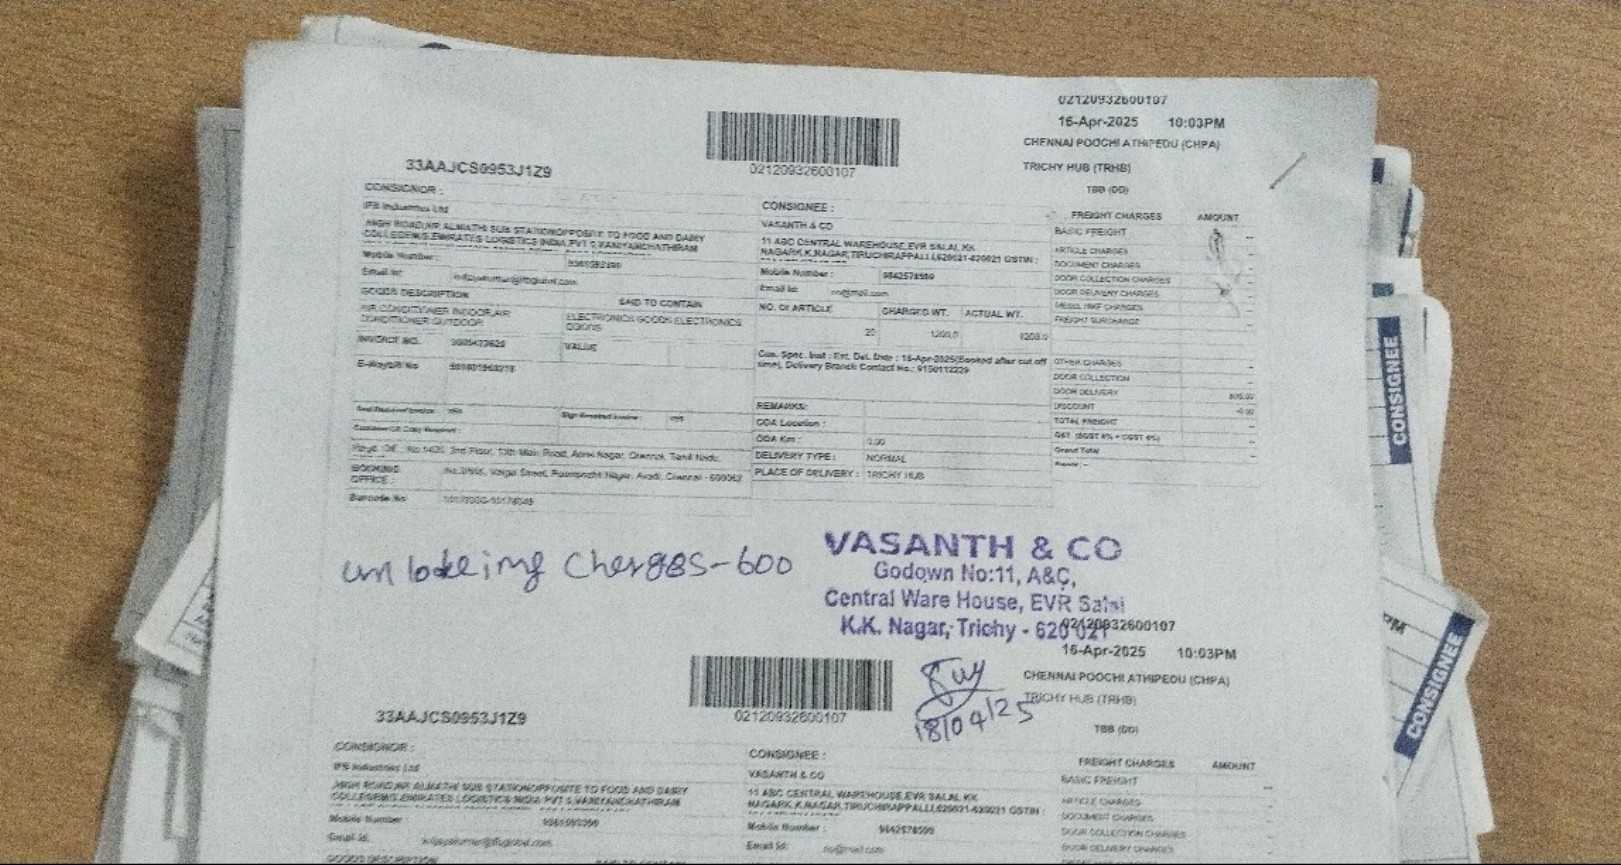 02120932600107
16-Apr-2025 10:03PM
CHENNAI POOCHI ATHIPEDU (CHPA)
TRICHY HUB (TRHB)
TBB (DD)
02120932600107
33AAJCS0953J1Z9
CONSIGNOR :
IFB Industries Ltd
HIGH ROAD,NR ALMATHI SUB STATIONOPPOSITE TO FOOD AND DAIRY
COLLEGEM/S.EMIRATES LOGISTICS INDIA PVT
Mobile Number :
Email Id:
CONSIGNEE :
VASANTH & CO
11 ABC CENTRAL WAREHOUSE,EVR SALAI,KK
NAGAR,K.K.NAGAR,TIRUCHIRAPPALLI,620021-620021 GSTIN :
Mobile Number : 9842578599
Email Id: no@mail.com
FREIGHT CHARGES AMOUNT
BASIC FREIGHT
ARTICLE CHARGES
DOCUMENT CHARGES
DOOR COLLECTION CHARGES
DOOR DELIVERY CHARGES
DIESEL HIKE CHARGES
FREIGHT SURCHARGE
OTHER CHARGES
DOOR COLLECTION
DOOR DELIVERY
DISCOUNT
TOTAL FREIGHT
Grand Total
GOODS DESCRIPTION SAID TO CONTAIN
AIR CONDITIONER INDOOR,AIR
CONDITIONER OUTDOOR
ELECTRONICS GOODS ELECTRONICS
GOODS
NO. Of ARTICLE CHARGED WT. ACTUAL WT.
20
INVOICE NO. VALUE
E-Waybill No
Cus. Spec. Inst : Ext. Del. Date : 18-Apr-2025(Booked after cut off
time), Delivery Branch Contact No.: 9150112229
REMARKS:
ODA Location :
ODA Km : 0.00
DELIVERY TYPE : NORMAL
PLACE OF DELIVERY : TRICHY HUB
BOOKING
OFFICE :
Barcode No
unloading Charges-600
VASANTH & CO
Godown No:11, A&C,
Central Ware House, EVR Salai
K.K. Nagar, Trichy - 620 021
18/04/25
02120932600107
16-Apr-2025 10:03PM
CHENNAI POOCHI ATHIPEDU (CHPA)
TRICHY HUB (TRHB)
TBB (DD)
02120932600107
33AAJCS0953J1Z9
CONSIGNOR :
IFB Industries Ltd
HIGH ROAD,NR ALMATHI SUB STATIONOPPOSITE TO FOOD AND DAIRY
COLLEGEM/S.EMIRATES LOGISTICS INDIA PVT
Mobile Number :
Email Id:
GOODS DESCRIPTION SAID TO CONTAIN
CONSIGNEE :
VASANTH & CO
11 ABC CENTRAL WAREHOUSE,EVR SALAI,KK
NAGAR,K.K.NAGAR,TIRUCHIRAPPALLI,620021-620021 GSTIN :
Mobile Number : 9842578599
Email Id: no@mail.com
FREIGHT CHARGES AMOUNT
BASIC FREIGHT
ARTICLE CHARGES
DOCUMENT CHARGES
DOOR COLLECTION CHARGES
DOOR DELIVERY CHARGES
CONSIGNEE
CONSIGNEE